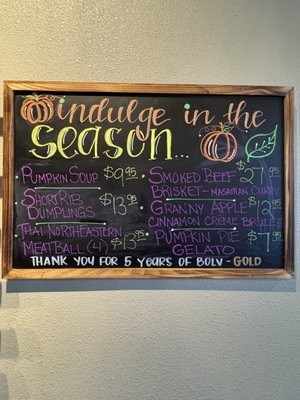 indulge in the
Season...
Pumpkin Soup $9.95
Short Rib
Dumplings $13.95
Thai Northeastern
Meatball (4) $13.95
Smoked Beef $27.95
Brisket - Massaman Curry
Granny Apple $12.95
Cinnamon Creme Brulee
Pumpkin Pie $7.95
Gelato
Thank you for 5 years of BOLV - Gold